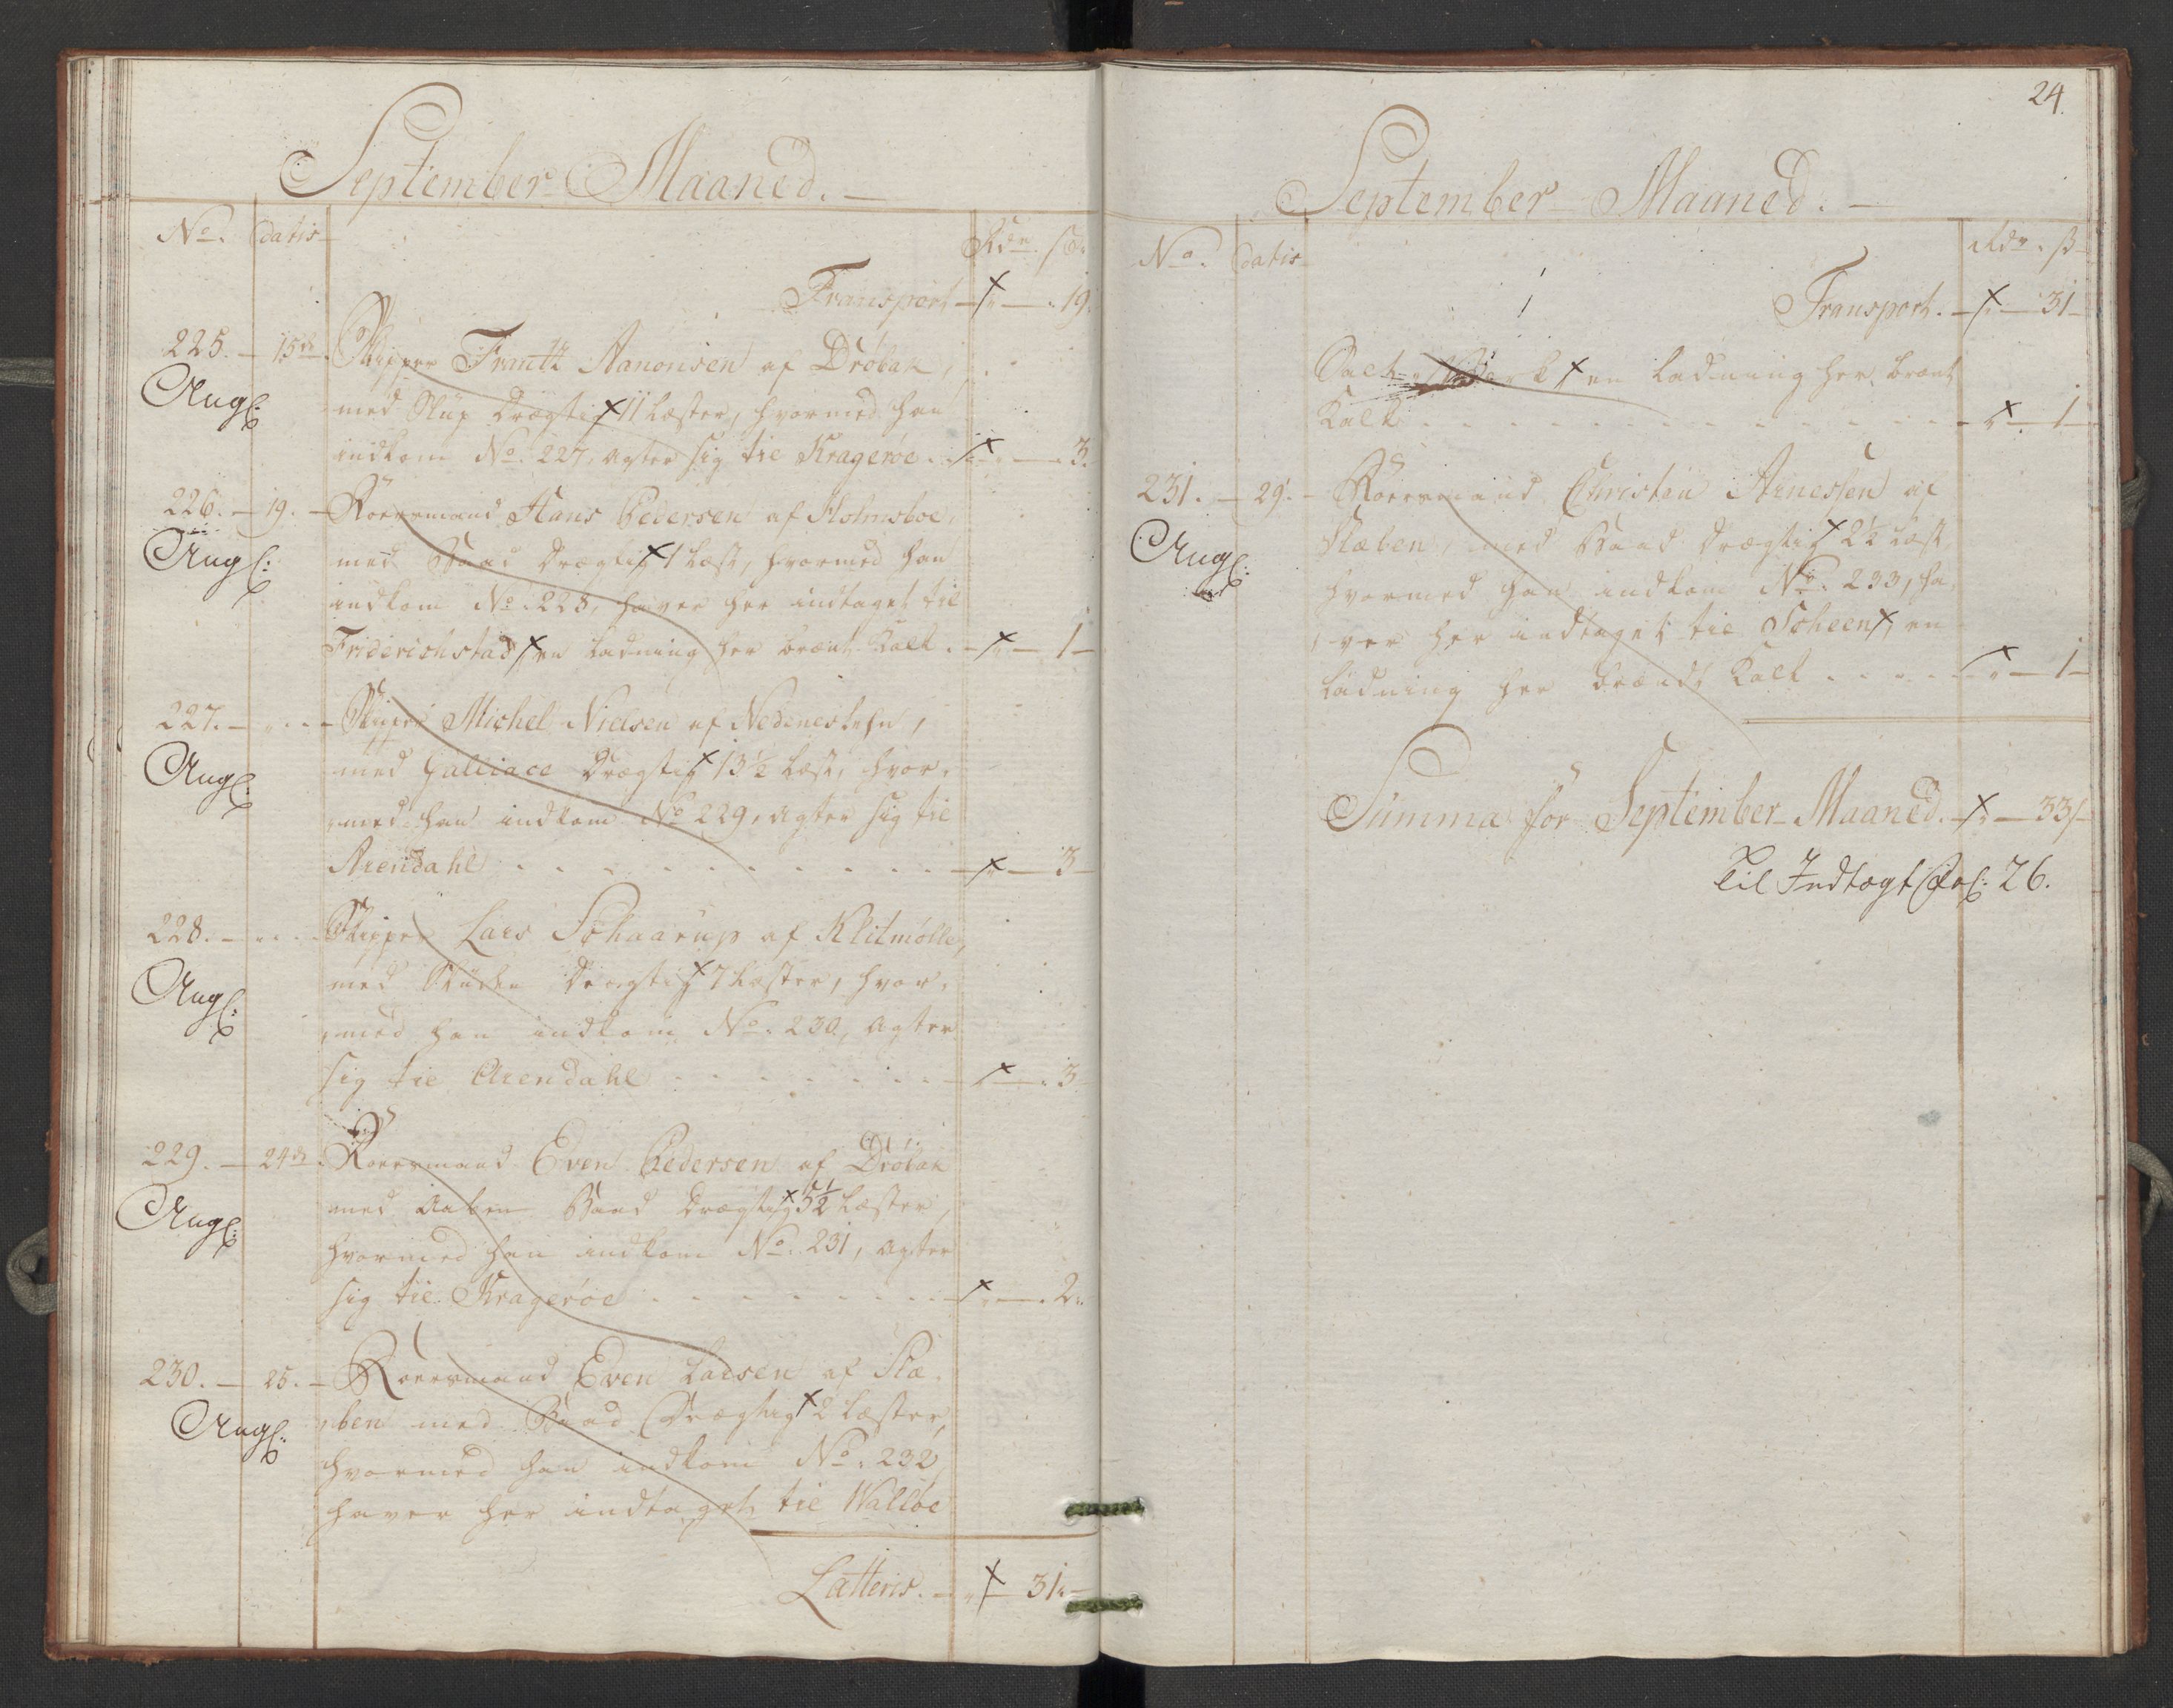 September Maaned.
No. datis Rdr. s.
Transport 19.
225. 15de Skipper Frantz Aanonsen af Drøbak,
Angl: med Slup drægtig 11 læster, hvormed han
indkom No. 227, agter sig til Kragerøe 3.
226. 19. Roersmand Hans Pedersen af Holmsboe,
Angl: med Baad drægtig 1 læst, hvormed han
indkom No. 228, haver her indtaget til
Friderichstad en ladning her brænt Kalk. 1
227. Skipper Michel Nielsen af Nedeneslehn,
Angl: med Galliace drægtig 13½ læst, hvor-
med han indkom No 229, agter sig til
Arendahl 3
228. Skipper Lars Schaarup af Klitmølle,
Angl: med Skude drægtig 7 læster, hvor-
med han indkom No. 230, agter
sig til Arendahl 3
229. 24de Roersmand Even Pedersen af Drøbak
Angl: med Aaben Baad drægtig 5½ læster,
hvormed han indkom No. 231, agter
sig til Kragerøe 2
230. 25. Roersmand Even Larsen af Slæ-
Angl: ben med Baad drægtig 2 læster,
hvormed han indkom No. 232
haver her indtaget til Walløe
Latteris. 31
24.
September Maaned.
No. datis Rdr. s
Transport. 31
Salt en ladning her brænt
Kalk 1
231. 29. Roersmand Christen Arnessen af
Angl: Slæben, med Baad drægtig 2½ læst,
hvormed han indkom No. 233, ha-
ver her indtaget til Scheen, en
ladning her brændt Kalk 1
Summa for September Maaned. 33
Til Indtægt Fol: 26.